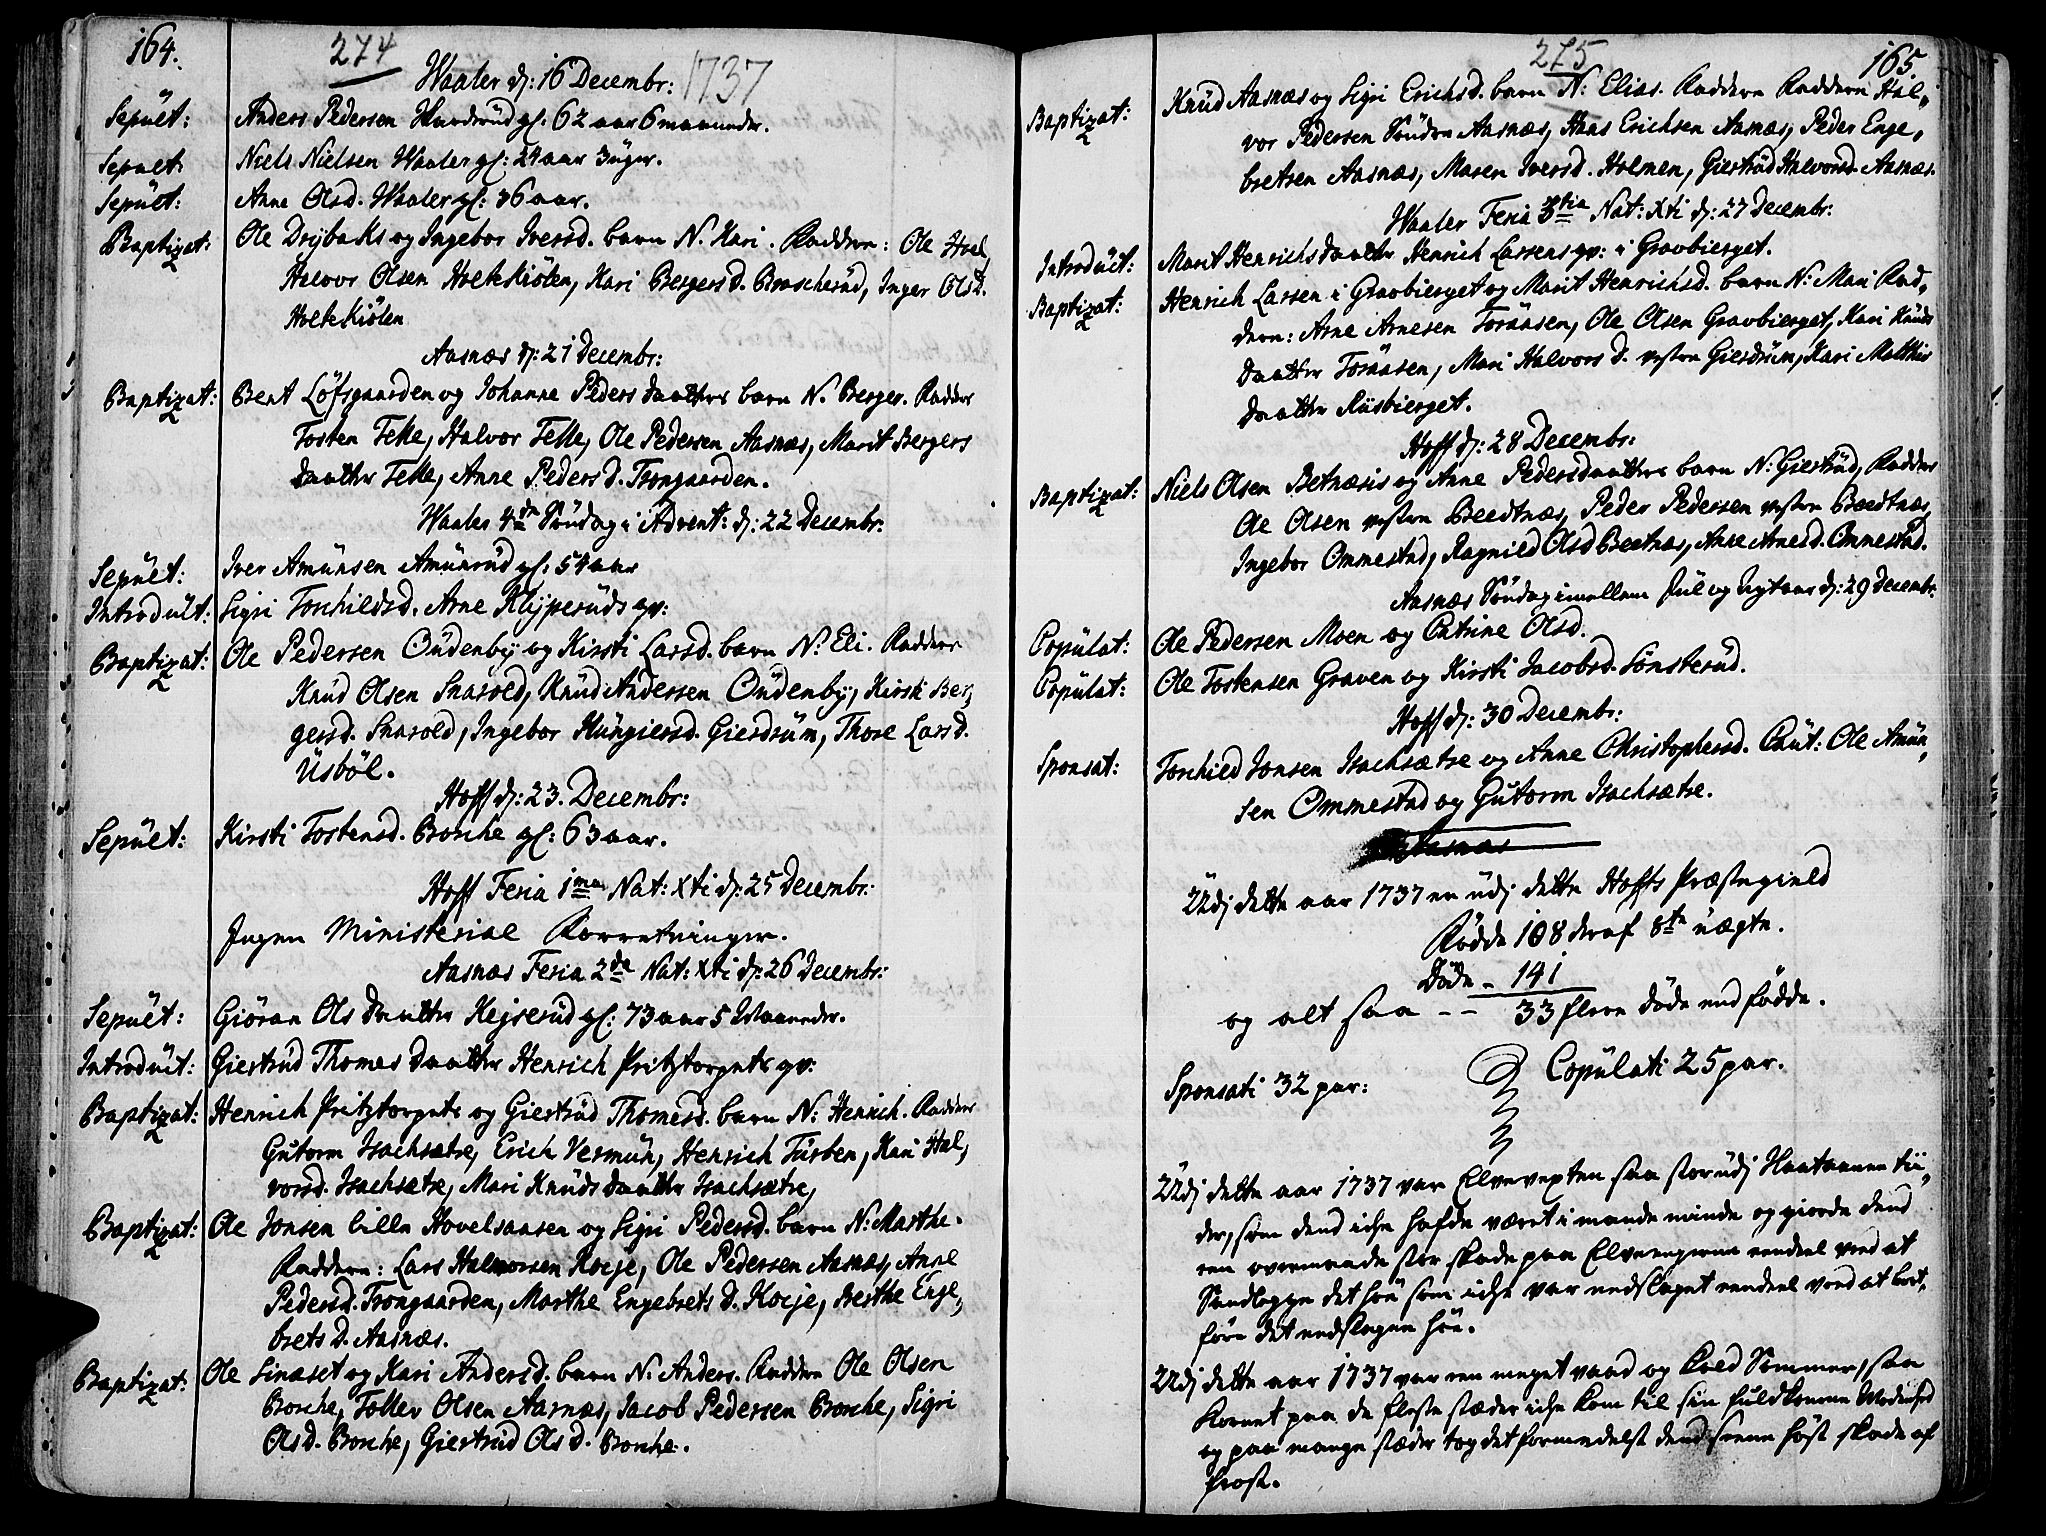 164.
274
Waaler dj: 16 Decembr: 1737
Sepult: Anders Pedersen Hvarderud gl: 62 aar 6 maaneder.
Sepult: Niels Nielsen Waaler gl: 24 aar 3 üger.
Sepult: Anne Olsd. Waaler gl: 36 aar.
Baptizat: Ole Drybaks og Ingebor Iversd. barn N. Kari. Faddere: Ole Hval,
Halvor Olsen Holtekiölen, Kari Bergersd. Brascherud, Inger Olsd.
Holtekiölen
Aasnæs dj: 21 Decembr:
Baptizat: Bent Löfsgaarden og Johanne Pedersdaatters barn N. Berger. Fadder
Tosten Telle, Halvor Telle, Ole Pedersen Aasnæs, Marit Bergers
daatter Telle, Anne Pedersd. Trongaarden.
Waaler 4de Söndag i Advent: dj: 22 Decembr:
Sepült: Iver Amünsen Amünrüd gl: 54 aar
Introduct: Sigri Torchildsd. Arne Klyperüds qv:
Baptizat: Ole Pedersen Oüdenby og Kirsti Larsd. barn N: Eli. Faddere
Knud Olsen Snarold, Knud Andersen Oüdenby, Kirsti Ber,
gersd. Snarold, Ingebor Küngiersd. Gierdrüm, Thore Larsd.
Üsböl.
Hoff dj: 23. Decembr:
Sepült: Kirsti Tostensd. Broche gl: 63 aar.
Hoff Feria 1ma Nat: Xti dj: 25 Decembr:
Ingen Ministerial Forretninger.
Aasnæs Feria 2da Nat: Xti dj: 26 Decembr:
Sepült: Giöran Olsdaatter Kejserud gl: 73 aar 5 Maaneder.
Introduct: Giertrüd Thomasdaatter Henrich Pritztorgets qv:
Baptizat: Henrich Pritztorgets og Giertrüd Thomesd. barn N: Henrich. Fadder
Gutorm Isachsætre, Erich Vermün, Henrich Türben, Kari Hal,
vorsd. Isachsætre, Mari Knüdsdaatter Isachsætre,
Baptizat: Ole Jonsen lille Hovelsaasen og Sigri Pedersd. barn N: Marthe.
Faddere: Lars Halvorsen Koeje, Ole Pedersen Aasnæs, Anne
Pedersd. Trongaarden, Marthe Engebretsd. Koeje, Berthe Enge,
bretsd. Aasnæs.
Baptizat: Ole Linæset og Kari Andersd. barn N. Anders. Faddere Ole Olsen
Broche, Tollev Olsen Aasnæs, Jacob Pedersen Broche, Sigri
Olsd. Broche, Giertrüd Olsd. Broche.
275
165.
Baptizat: Knüd Aasnæs og Sigri Erichsd. barn N: Elias. Faddere Faddere Hal,
vor Pedersen Söndre Aasnæs, Haas Erichsen Aasnæs, Peder Enge,
bretsen Aasnæs, Maren Iversd. Holmen, Giertrüd Halvorsd. Aasnæs.
Waaler Feria 3tia Nat: Xti dj: 27 Decembr:
Introduct: Marit Henrichsdaatter Henrich Larsens qv: i Gravbierget.
Baptizat: Henrich Larsen i Gravbierget og Marit Henrichsd. barn N: Mari Fad,
dere: Arne Arnesen Toraasen, Ole Olsen Gravbierget, Kari Knüds
daatter Toraasen, Mari Halvorsd. vestre Gierdrüm, Kari Matthis
daatter Riisbierget.
Hoff dj: 28 Decembr:
Baptizat: Niels Olsen Betnæsis og Anne Pedersdaatters barn N: Giertrüd, Fadder
Ole Olsen vestre Breedtnæs, Peder Pedersen vestre Bredtnæs,
Ingebor Ommestad, Ragnild Olsd Beetnæs, Anne Arnesd. Ommestad.
Aasnæs Söndag imellem Jül og Nytaar dj: 29 Decembr:
Copülat: Ole Pedersen Moen og Catrine Olsd.
Copülat: Ole Tostensen Graven og Kirsti Jacobsd. Sönsterud.
Hoff dj: 30 Decembr:
Sponsat: Torchild Jonsen Isachsætre og Anne Christophersd. Caüt: Ole Amün,
sen Ommestad og Gütorm Isachsætre.
Aasnæs
Udj dette aar 1737 er üdj dette Hoffs Præstegield
Födde 108 deraf 8te uægte.
Döde – 141
og alt saa – – 33 flere döde end födde.
Sponsati 32 par:
Copülati 25 par.
Udj dette aar 1737 var Elvevexten saa stor üdj Haataanne tii,
der, som dend iche hafde været i mande minde og giorde dend
een overmaade stor skade paa Elveengerne eendeel ved at
Sandlegge det höe som iche var nedslaget eendeel ved at bort,
före det nedslagen höe.
Udj dette aar 1737 var een meget vaad og kold Sommer, saa
Kornet paa de fleste stæder iche kom til sin fuldkomne Modenhed
og paa mange stæder tog det formedelst dend seene höst skade af
frost.